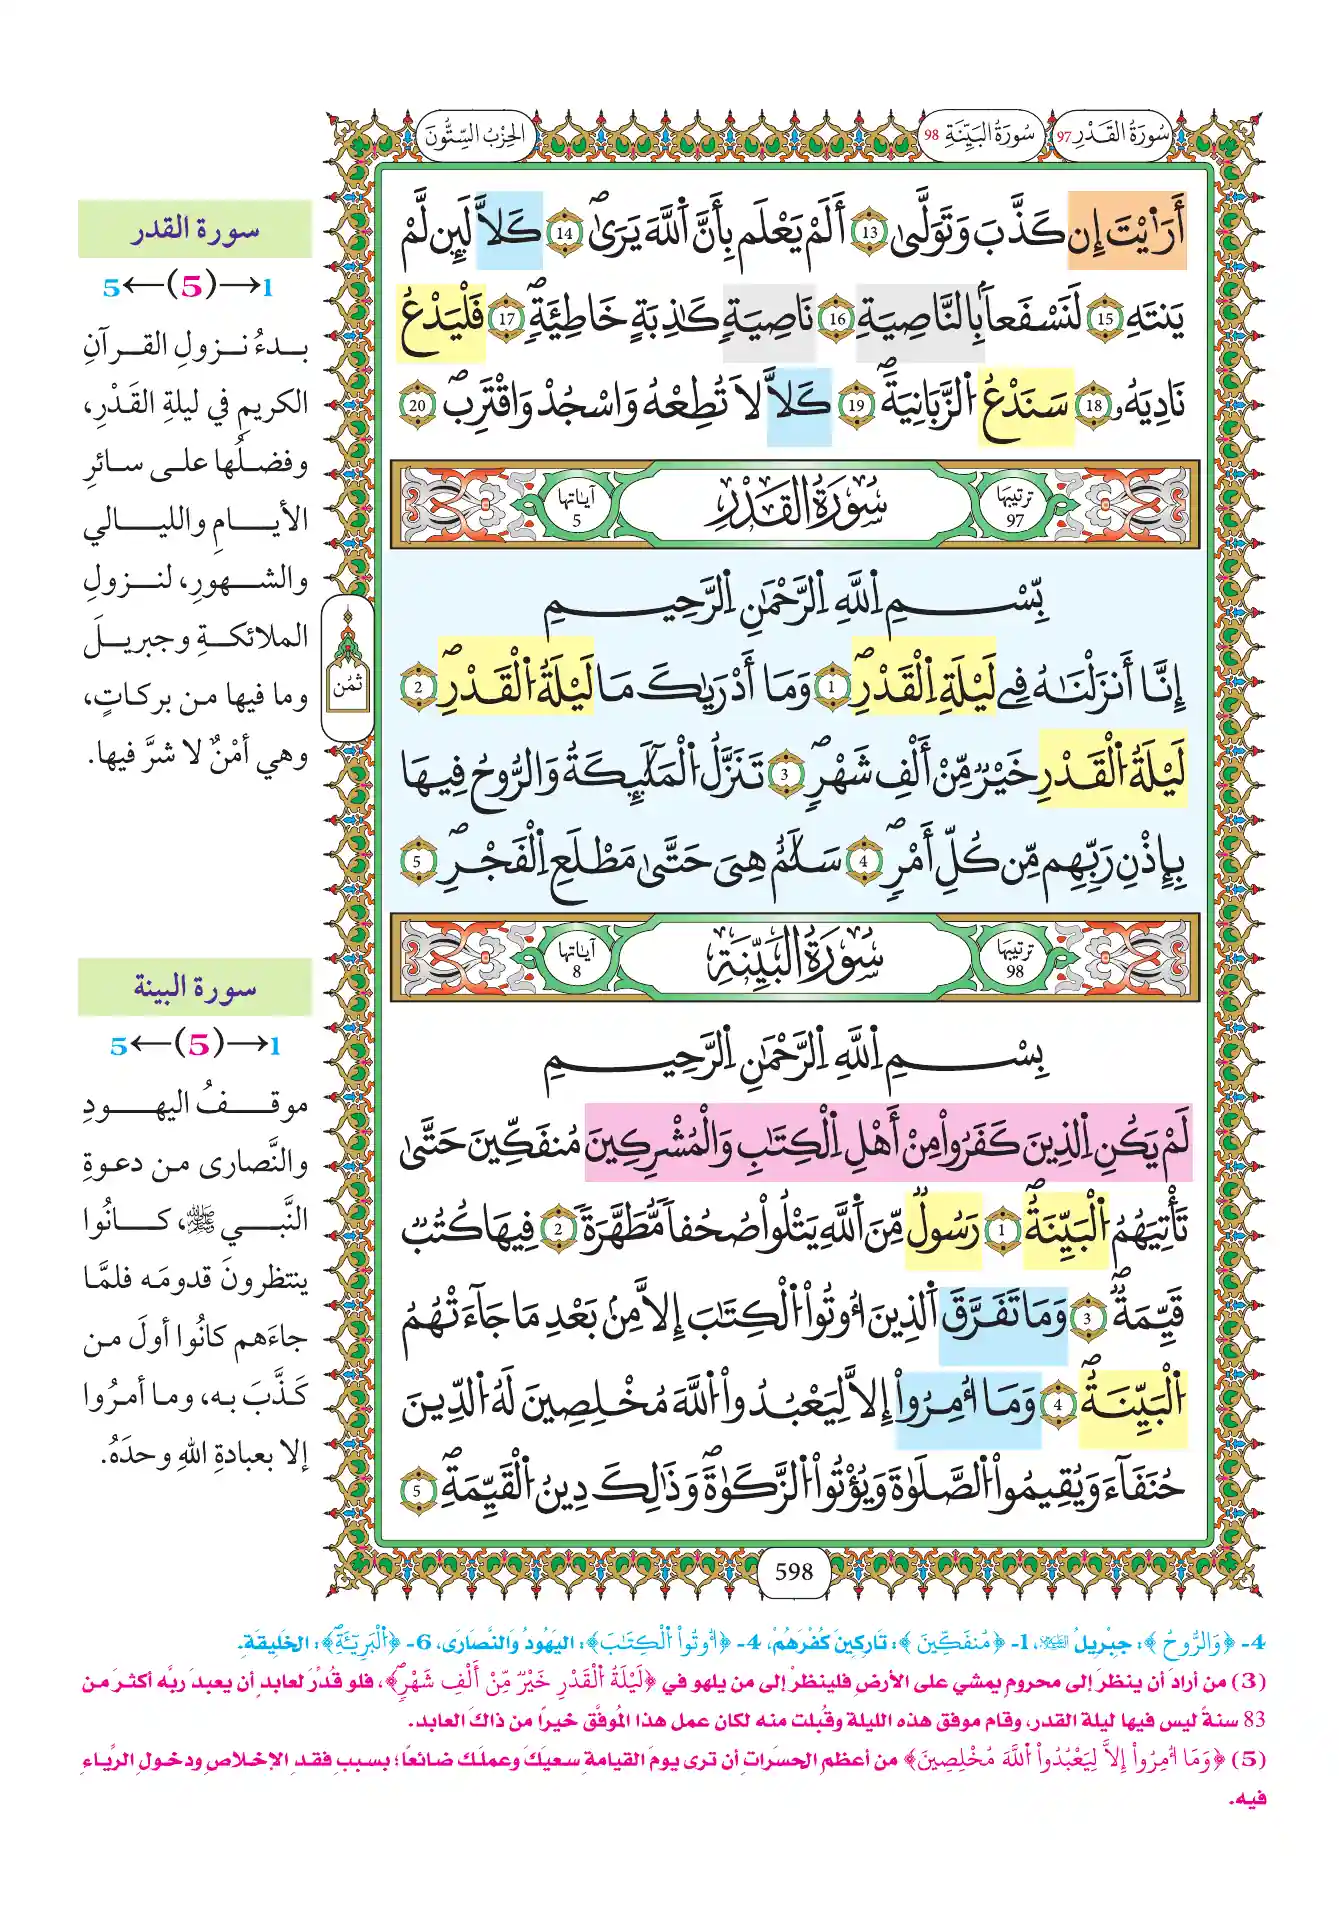 سُورَةُ القَدْرِ 97
سُورَةُ البَيِّنَةِ 98
الحِزْبُ السِّتُّونَ
أَرَٰيْتَ إِن كَذَّبَ وَتَوَلَّىٰٓ 13 أَلَمْ يَعْلَم بِأَنَّ اَ۬للَّهَ يَرَىٰۖ 14 كَلاَّ لَئِن لَّمْ
يَنتَهِ 15 لَنَسْفَعاَۢ بِالنَّاصِيَةِ 16 نَاصِيَةٖ كَٰذِبَةٍ خَاطِئَةٖۖ 17 فَلْيَدْعُ
نَادِيَهُۥ 18 سَنَدْعُ اُ۬لزَّبَانِيَةَۖ 19 كَلاَّ لاَ تُطِعْهُ وَاسْجُدْ وَاقْتَرِبۖ 20
سُورَةُ القَدْرِ
ترتيبها 97
آياتها 5
بِّسْمِ اِ۬للَّهِ اِ۬لرَّحْمَٰنِ اِ۬لرَّحِيمِ
إِنَّا أَنزَلْنَٰهُ فِي لَيْلَةِ اِ۬لْقَدْرِۖ 1 وَمَا أَدْر۪يٰكَ مَا لَيْلَةُ اُ۬لْقَدْرِۖ 2
لَيْلَةُ اُ۬لْقَدْرِ خَيْرٞ مِّنْ أَلْفِ شَهْرٖۖ 3 تَنَزَّلُ اُ۬لْمَلَٰٓئِكَةُ وَالرُّوحُ فِيهَا
بِإِذْنِ رَبِّهِم مِّن كُلِّ أَمْرٖۖ 4 سَلَٰمٌ هِيَ حَتَّىٰ مَطْلَعِ اِ۬لْفَجْرِۖ 5
سُورَةُ البَيِّنَةِ
ترتيبها 98
آياتها 8
بِسْمِ اِ۬للَّهِ اِ۬لرَّحْمَٰنِ اِ۬لرَّحِيمِ
لَمْ يَكُنِ اِ۬لذِينَ كَفَرُواْ مِنْ أَهْلِ اِ۬لْكِتَٰبِ وَالْمُشْرِكِينَ مُنفَكِّينَ حَتَّىٰ
تَأْتِيَهُمُ اُ۬لْبَيِّنَةُۖ 1 رَسُولٞ مِّنَ اَ۬للَّهِ يَتْلُواْ صُحُفاٗ مُّطَهَّرَةٗ 2 فِيهَا كُتُبٞ
قَيِّمَةٞۖ 3 وَمَا تَفَرَّقَ اَ۬لذِينَ أُوتُواْ اُ۬لْكِتَٰبَ إِلاَّ مِنۢ بَعْدِ مَا جَآءَتْهُمُ
اُ۬لْبَيِّنَةُۖ 4 وَمَا أُمِرُواْ إِلاَّ لِيَعْبُدُواْ اُ۬للَّهَ مُخْلِصِينَ لَهُ اُ۬لدِّينَ
حُنَفَآءَ وَيُقِيمُواْ اُ۬لصَّلَوٰةَ وَيُؤْتُواْ اُ۬لزَّكَوٰةَۖ وَذَٰلِكَ دِينُ اُ۬لْقَيِّمَةِۖ 5
598
سورة القدر
1→(5)←5
بدءُ نزولِ القرآنِ
الكريمِ في ليلةِ القَدْرِ،
وفضلُها على سائرِ
الأيامِ والليالي
والشهورِ، لنزولِ
الملائكةِ وجبريلَ
وما فيها من بركاتٍ،
وهي أمْنٌ لا شرَّ فيها.
ثمُن
سورة البينة
1→(5)←5
موقفُ اليهودِ
والنَّصارى من دعوةِ
النَّبي ﷺ، كانُوا
ينتظرونَ قدومَه فلمَّا
جاءَهم كانُوا أولَ من
كَذَّبَ به، وما أمرُوا
إلا بعبادةِ اللهِ وحدَهُ.
4- ﴿وَالرُّوحُ﴾: جِبْرِيلُ عليه السلام، 1- ﴿مُنفَكِّينَ﴾: تَارِكِينَ كُفْرَهُمْ، 4- ﴿أُوتُواْ اُ۬لْكِتَٰبَ﴾: اليَهُودُ وَالنَّصَارَى، 6- ﴿اِ۬لْبَرِيٓـَٔةِۖ﴾: الخَلِيقَةِ.
(3) من أرادَ أن ينظرَ إلى محرومٍ يمشي على الأرضِ فلينظرْ إلى من يلهو في ﴿لَيْلَةُ اُ۬لْقَدْرِ خَيْرٞ مِّنْ أَلْفِ شَهْرٖۖ﴾، فلو قُدِّرَ لعابدٍ أن يعبدَ ربَّه أكثرَ من
83 سنةً ليس فيها ليلة القدر، وقام موفق هذه الليلة وقُبلت منه لكان عمل هذا المُوفَّق خيراً من ذاكَ العابد.
(5) ﴿وَمَا أُمِرُواْ إِلاَّ لِيَعْبُدُواْ اُ۬للَّهَ مُخْلِصِينَ﴾ من أعظمِ الحسَراتِ أن ترى يومَ القيامةِ سعيَكَ وعملَكَ ضائعاً؛ بسببِ فقدِ الإخلاصِ ودخولِ الرِّياءِ
فيه.